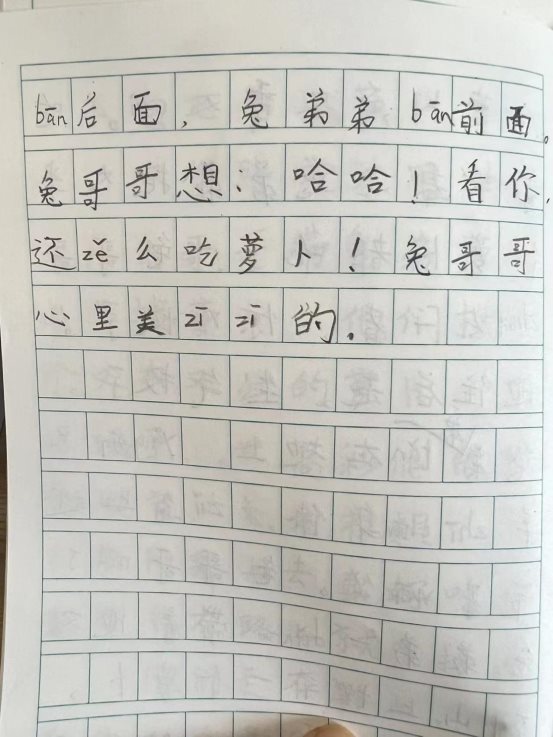 bān后面,兔弟弟bān前面。
兔哥哥想:哈哈!看你,
还zě么吃萝卜!兔哥哥
心里美zī zī的.